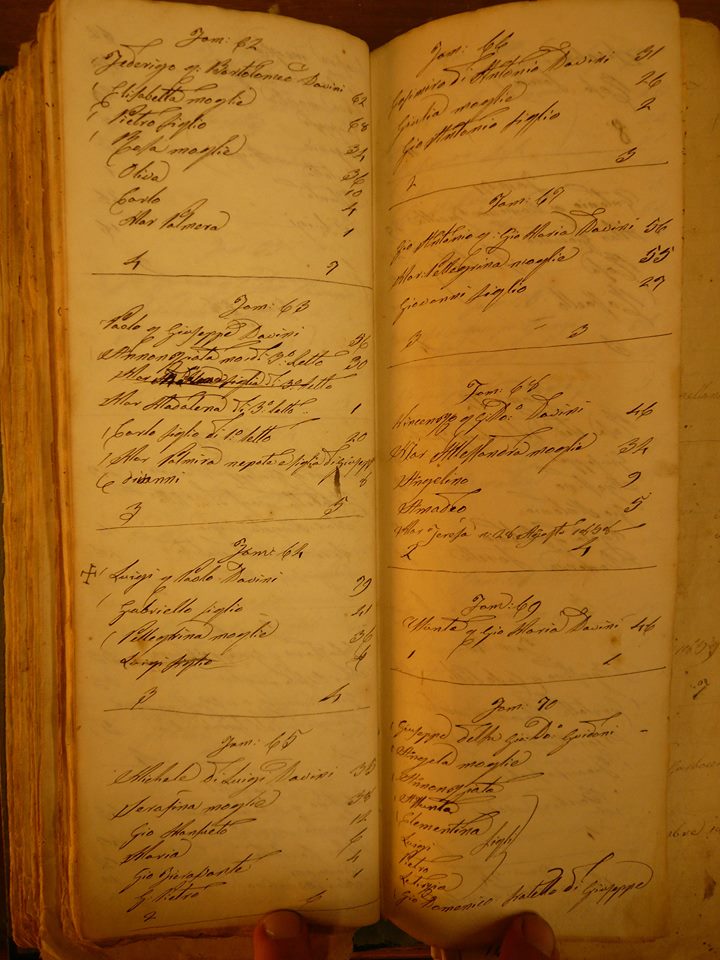 Fam: 62
Federigo q: Bartolomeo Davini 62
Elisabetta moglie 68
Pietro figlio 34
Rosa moglie 36
Oliva 10
Carlo 4
Mar Palmera 1
4 7
Fam: 63
Paolo q Giuseppe Davini 56
Annonziata 3° Letto 30
Mar figlia di 3° Letto
Mar Madalena di 3° Letto 1
Carlo figlio di 1° letto 20
Mar Palmira nepote e figlia di Giusepp
e Vanni 8
3 5
Fam: 64
Luigi q Paolo Davini 79
Gabriello figlio 41
Pellegrina moglie 36
Luigi figlio
3 4
Fam: 65
Michele di Luigi Davini 35
Serafina moglie 38
Gio Mansueto 12
Maria
Gio Pieropante 4
G Pietro 1
2
Fam: 66
Casimiro di Antonio Davini 31
Giulia moglie 26
Gio Antonio figlio 2
2 3
Fam: 67
Gio Antonio q: Gio Maria Davini 56
Mar: Pellegrina moglie 55
Giovanni figlio 27
3 3
Fam: 68
Vincenzo q G Do:° Davini 46
Mar Alessandra moglie 34
Angelino 9
Amadeo 5
Mar Teresa n: 28 Agosto
2 4
Fam: 69
Assunta q Gio Maria Davini 46
1 1
Fam: 70
Giuseppe della Gio Do:° Guidoni
Angela moglie
Annonziata
Assunta
Clementina figli
Luigi
Pietro
Letizia
Gio Domenico fratello di Giuseppe